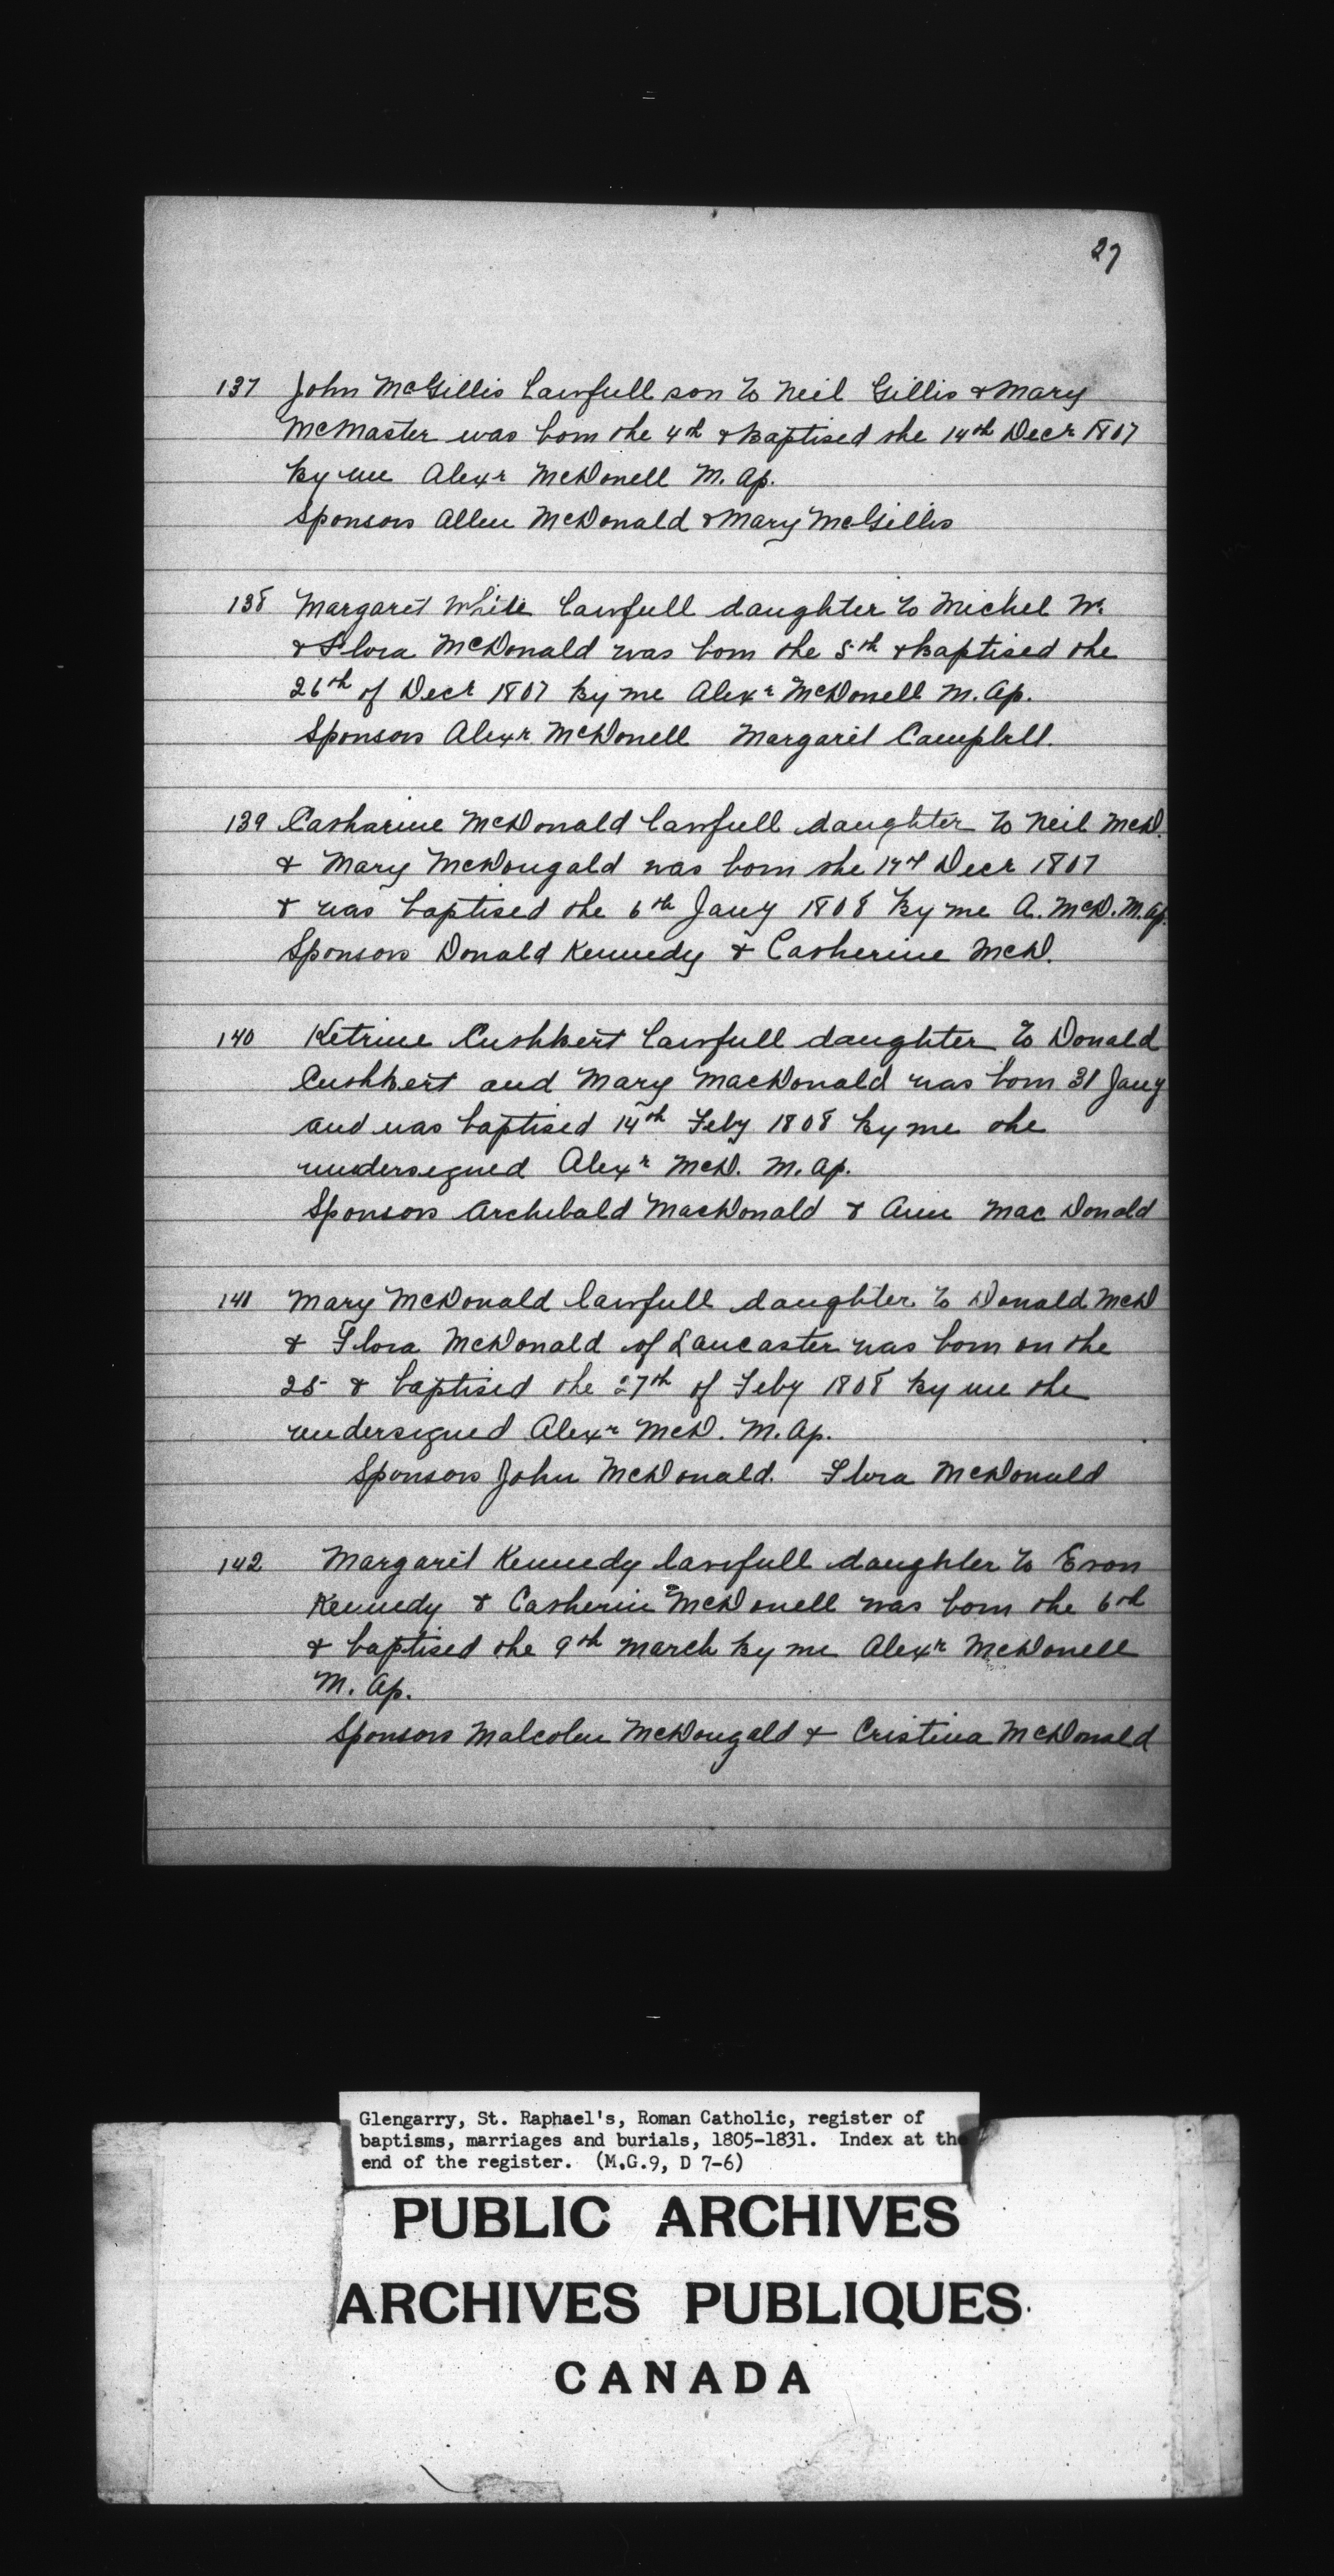 27
137 John McGillis lawfull son to Neil Gillis & Mary
McMaster was born the 4th & baptised the 14th Decr 1807
by me Alexr McDonell M. Ap.
Sponsors Allen McDonald & Mary McGillis
138 Margaret White lawfull daughter to Michel W.
& Flora McDonald was born the 5th & baptised the
26th of Decr 1807 by me Alexr McDonell M. Ap.
Sponsors Alexr McDonell Margaret Campbell.
139 Catharine McDonald lawfull daughter to Neil McD.
& Mary McDougald was born the Decr 1807
& was baptised the 6th Jany 1808 by me A. McD. M. Ap.
Sponsors Donald Kennedy & Catherine McD.
140 Ketrine Cushbert lawfull daughter to Donald
Cushbert and Mary MacDonald was born 31 Jany
and was baptised 14th Feby 1808 by me the
undersigned Alexr McD. M. Ap.
Sponsors Archibald MacDonald & Ann Mac Donald
141 Mary McDonald lawfull daughter to Donald McD
& Flora McDonald of Lancaster was born on the
25 & baptised the 27th of Feby 1808 by me the
undersigned Alexr McD. M. Ap.
Sponsors John McDonald. Flora McDonald
142 Margaret Kennedy lawfull daughter to Evon
Kennedy & Catherin McDonell was born the 6th
& baptised the 9th March by me Alexr McDonell
M. Ap.
Sponsors Malcolm McDougald & Cristina McDonald
Glengarry, St. Raphael's, Roman Catholic, register of
baptisms, marriages and burials, 1805-1831. Index at the
end of the register. (M.G.9, D 7-6)
PUBLIC ARCHIVES
ARCHIVES PUBLIQUES
CANADA